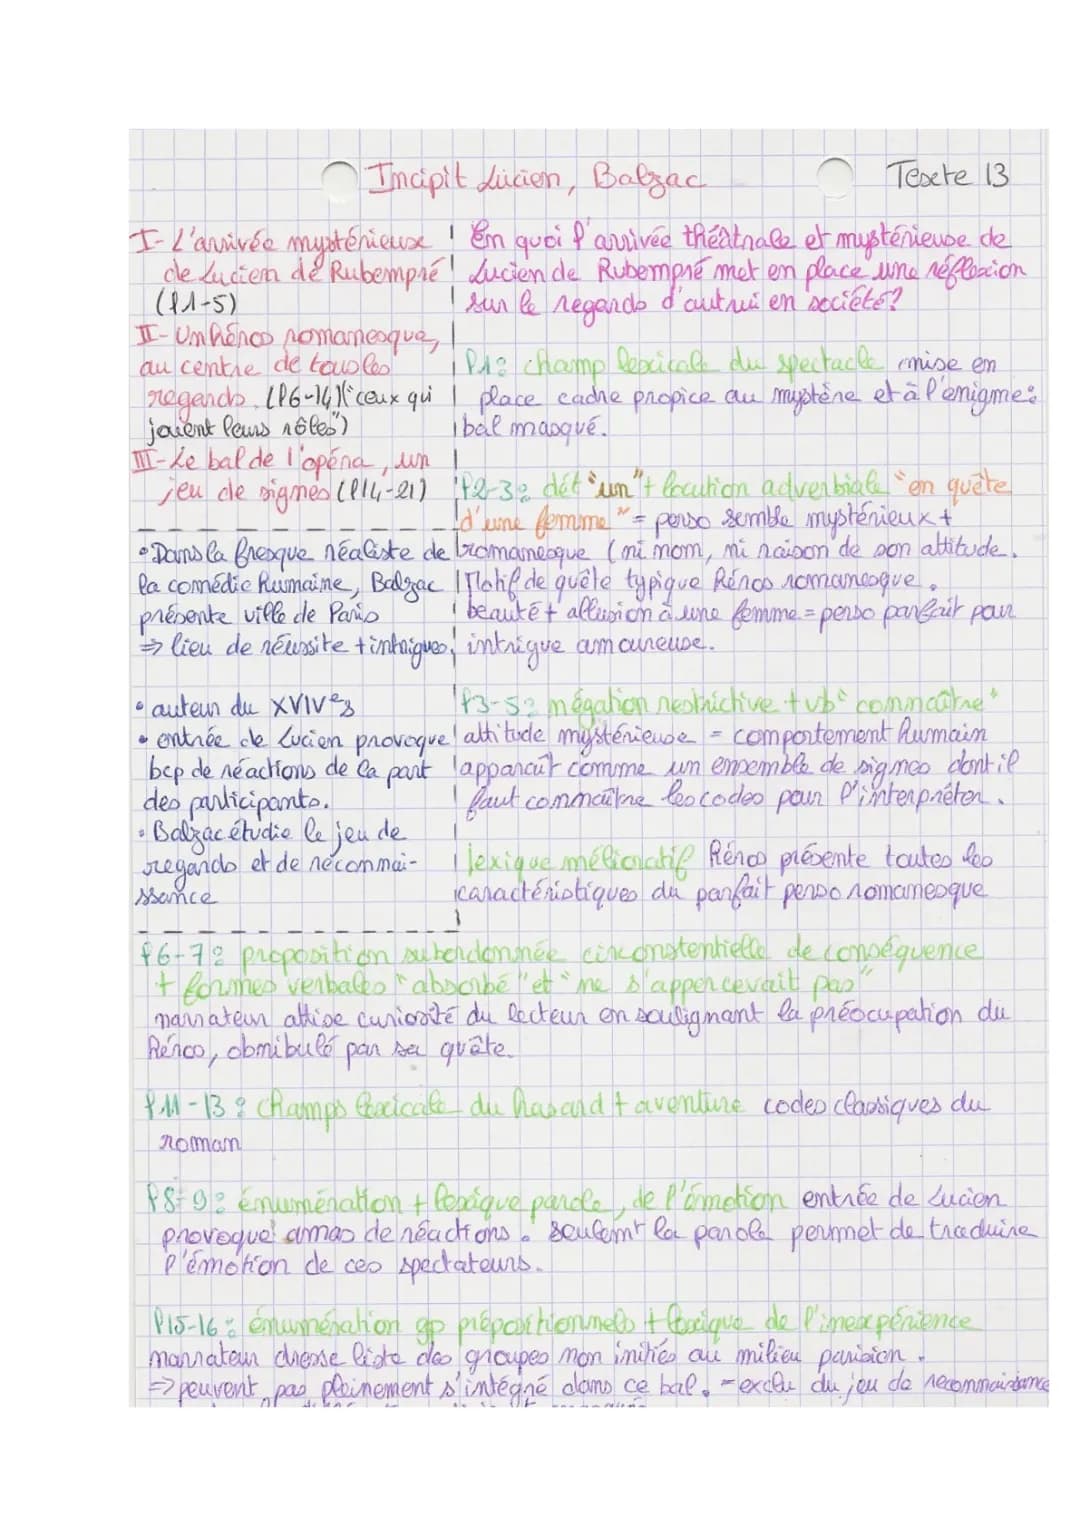 Incipit Lucien, Balzac
Texte 13
I- L'arrivée mystérieuse
de Lucien de Rubempré
(l1-5)
II- Un héros romanesque,
au centre de tous les
regards (l6-14) ("ceux qui
jouent leurs rôles")
III- Le bal de l'opéra, un
jeu de signes (l14-21)
• Dans la fresque réaliste de
la comédie humaine, Balzac
présente ville de Paris
⇒ lieu de réussite + intrigues.
• auteur du XVIVes
• entrée de Lucien provoque
bcp de réactions de la part
des participants.
• Balzac étudie le jeu de
regards et de reconnai-
ssance
En quoi l'arrivée théâtrale et mystérieuse de
Lucien de Rubempré met en place une réflexion
sur le regards d'autrui en société?
l1: champ lexicale du spectacle mise en
place cadre propice au mystère et à l'énigme:
bal masqué.
l2-3: dét "un" + locution adverbiale "en quête
d'une femme" = perso semble mystérieux +
romanesque (ni nom, ni raison de son attitude.
Motif de quête typique héros romanesque.
beauté + allusion à une femme = perso parfait pour
intrigue amoureuse.
l3-5: négation restrictive + vb "connaître"
attitude mystérieuse = comportement humain
apparaît comme un ensemble de signes dont il
faut connaître les codes pour l'interpréter.
lexique mélioratif héros présente toutes les
caractéristiques du parfait perso romanesque
l6-7: proposition subordonnée circonstentielle de conséquence
+ formes verbales "absorbé" et "ne s'appercevait pas"
narrateur attise curiosité du lecteur en soulignant la préocupation du
héros, obnibulé par sa quête.
l11-13: champs lexicale du hasard + aventure codes classiques du
roman
l8-9: énumération + lexique parole, de l'émotion entrée de Lucien
provoque amas de réactions. seulemt la parole permet de traduire
l'émotion de ces spectateurs.
l15-16: énumération gp prépositionnels + lexique de l'inexpérience
narrateur dresse liste des groupes non initiés au milieu parisien.
⇒ peuvent pas pleinement s'intégré dans ce bal. - exclu du jeu de reconnaissance